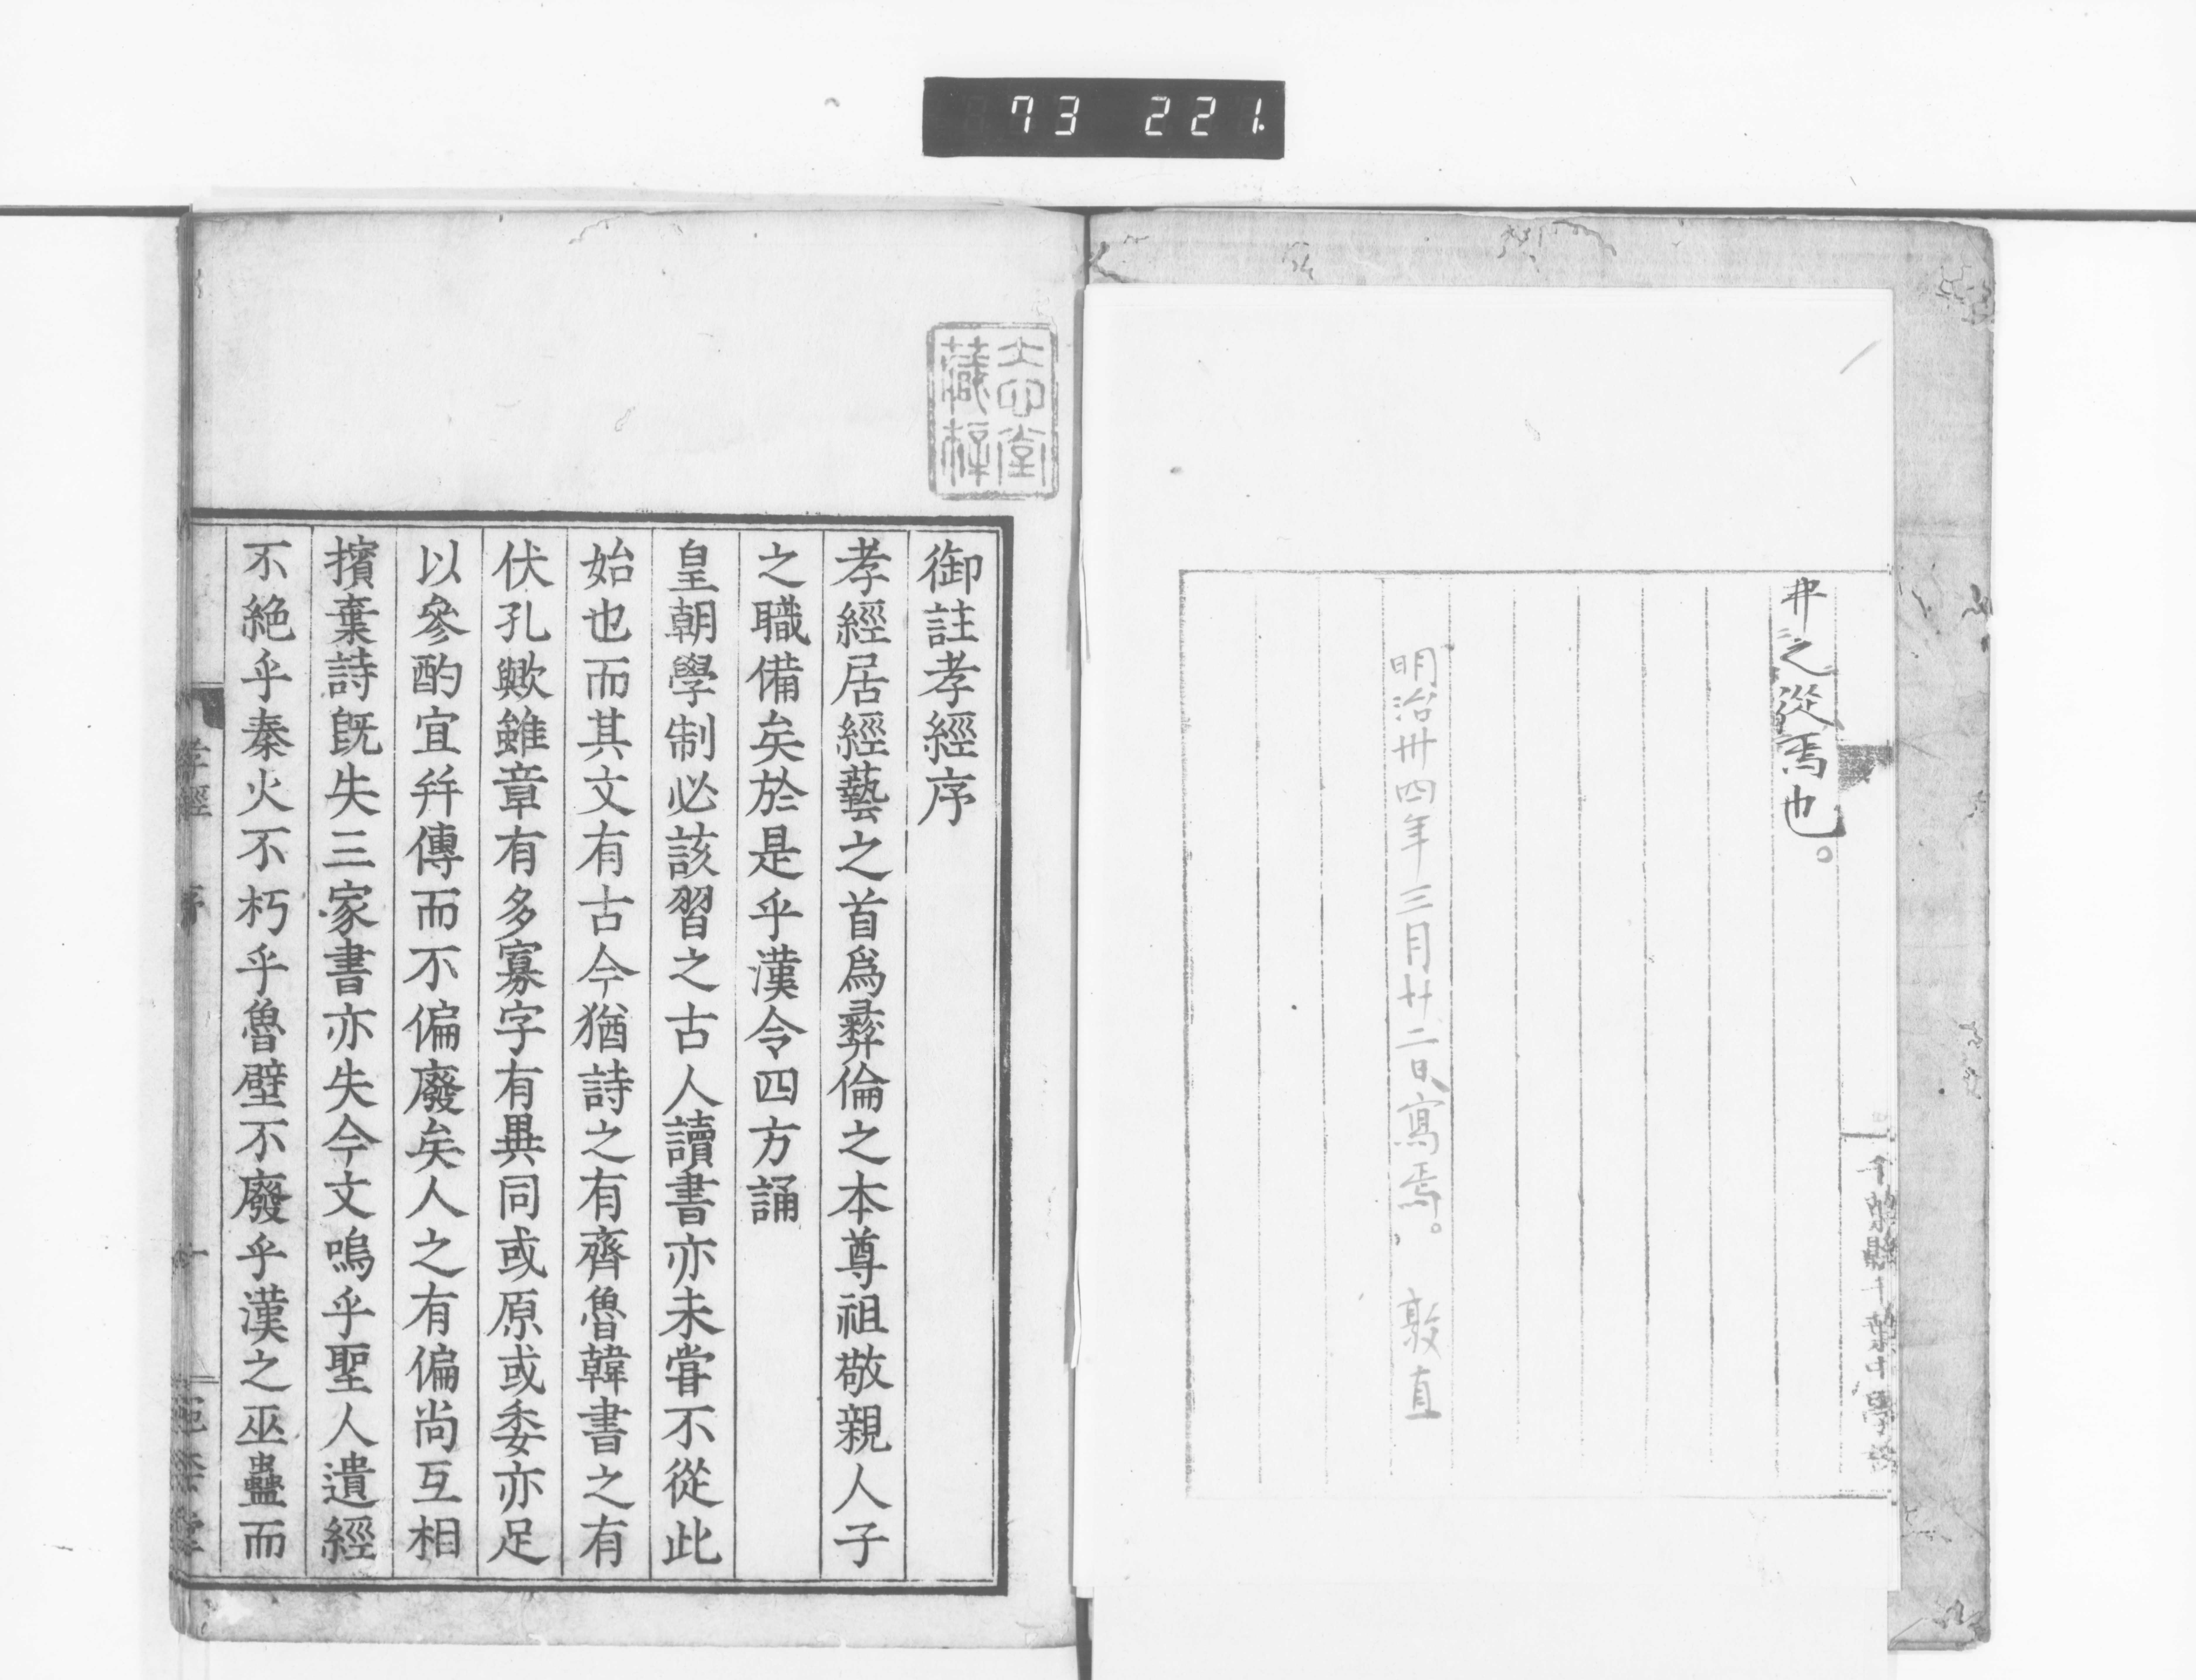 73 221.
弗之從焉也。
明治卅四年三月廿二日寫焉。 敦直
御註孝經序
孝經居經藝之首爲彝倫之本尊祖敬親人子
之職備矣於是乎漢令四方誦
皇朝學制必該習之古人讀書亦未甞不從此
始也而其文有古今猶詩之有齊魯韓書之有
伏孔歟雖章有多寡字有異同或原或委亦足
以參酌宜幷傳而不偏廢矣人之有偏尚互相
擯棄詩旣失三家書亦失今文嗚乎聖人遺經
不絶乎秦火不朽乎魯壁不廢乎漢之巫蠱而
孝經 序